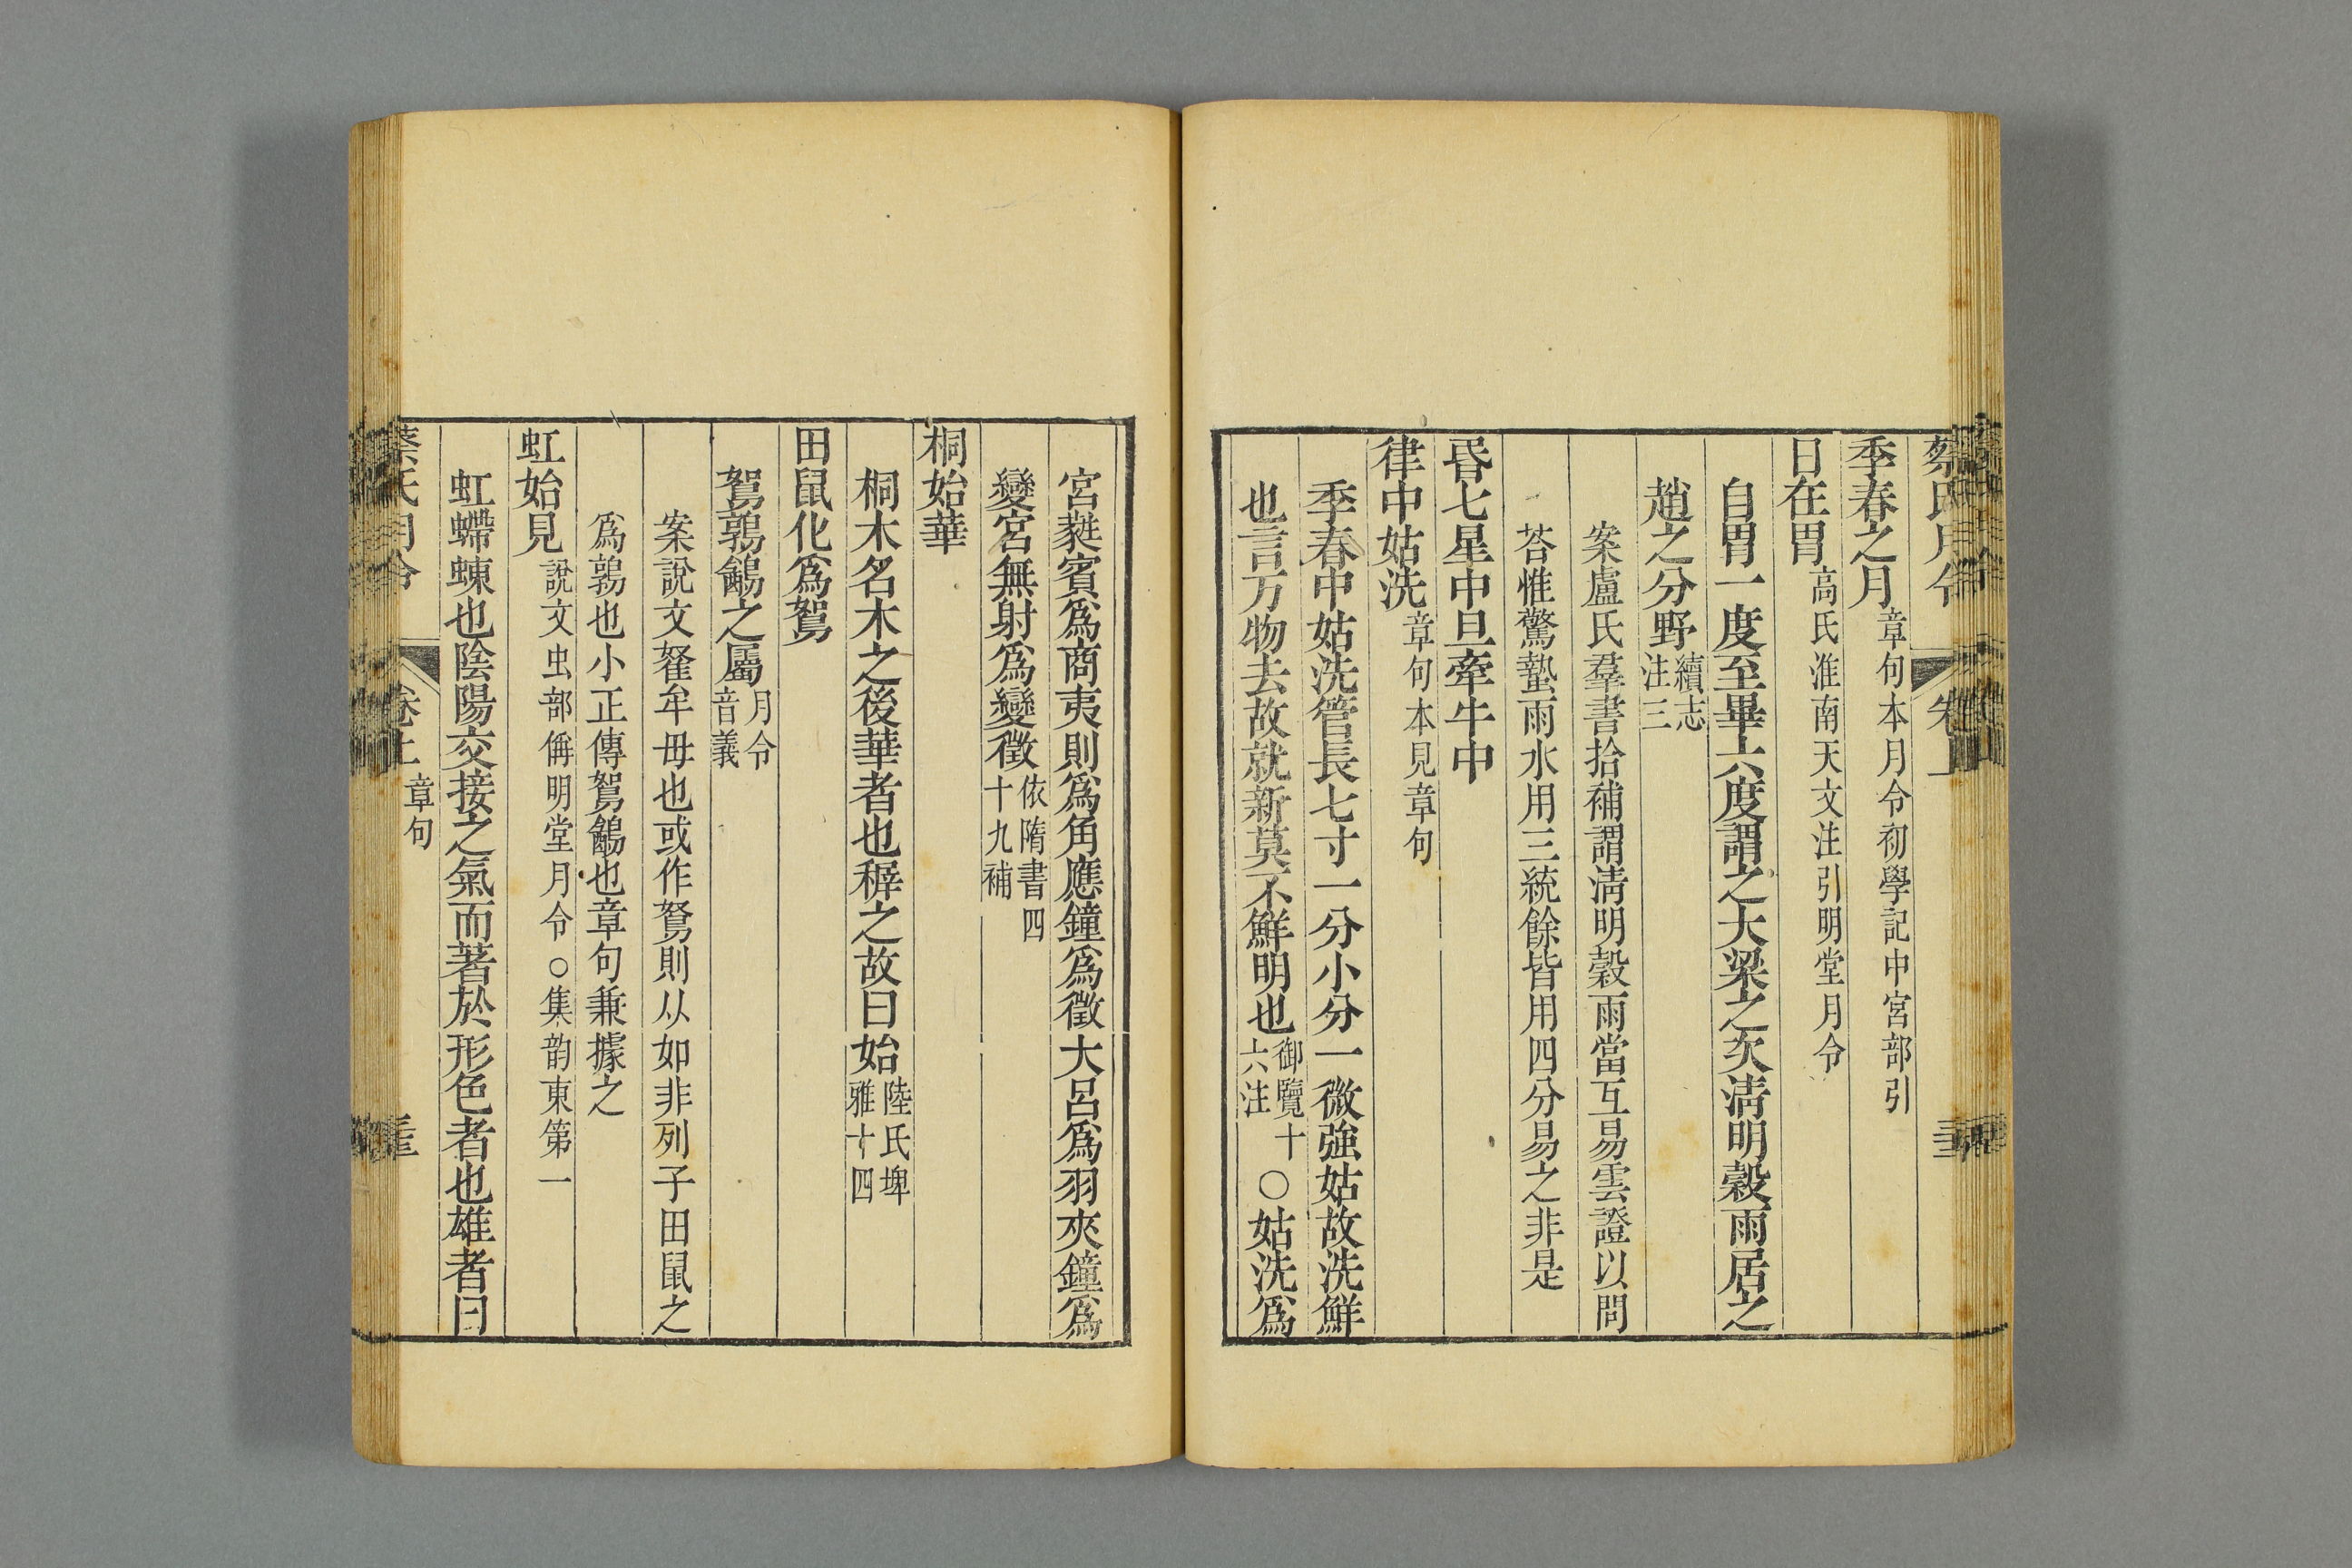 蔡氏月令
季春之月章句本月令初學記中宮部引
日在胃高氏淮南天文注引明堂月令
自胃一度至畢六度謂之大梁之次淸明穀雨居之
趙之分野續志注三
案盧氏羣書拾補謂淸明穀雨當互易雲證以問
荅惟驚蟄雨水用三統餘皆用四分易之非是
昬七星中旦牽牛中
律中姑洗章句本見章句
季春中姑洗管長七寸一分小分一微強姑故洗鮮
也言万物去故就新莫不鮮明也御覽十六注○姑洗爲
宮蕤賓爲商夷則爲角應鐘爲徵大呂爲羽夾鐘爲
變宮無射爲變徵依隋書四十九補
桐始華
桐木名木之後華者也稺之故曰始陸氏埤雅十四
田鼠化爲鴽
鴽鶉鷂之屬月令音義
案說文䳺牟毋也或作鴽則从如非列子田鼠之
爲鶉也小正傳鴽鷂也章句兼據之
虹始見說文虫部偁明堂月令○集韵東第一
虹螮蝀也陰陽交接之氣而著於形色者也雄者曰
蔡氏月令 卷上 章句